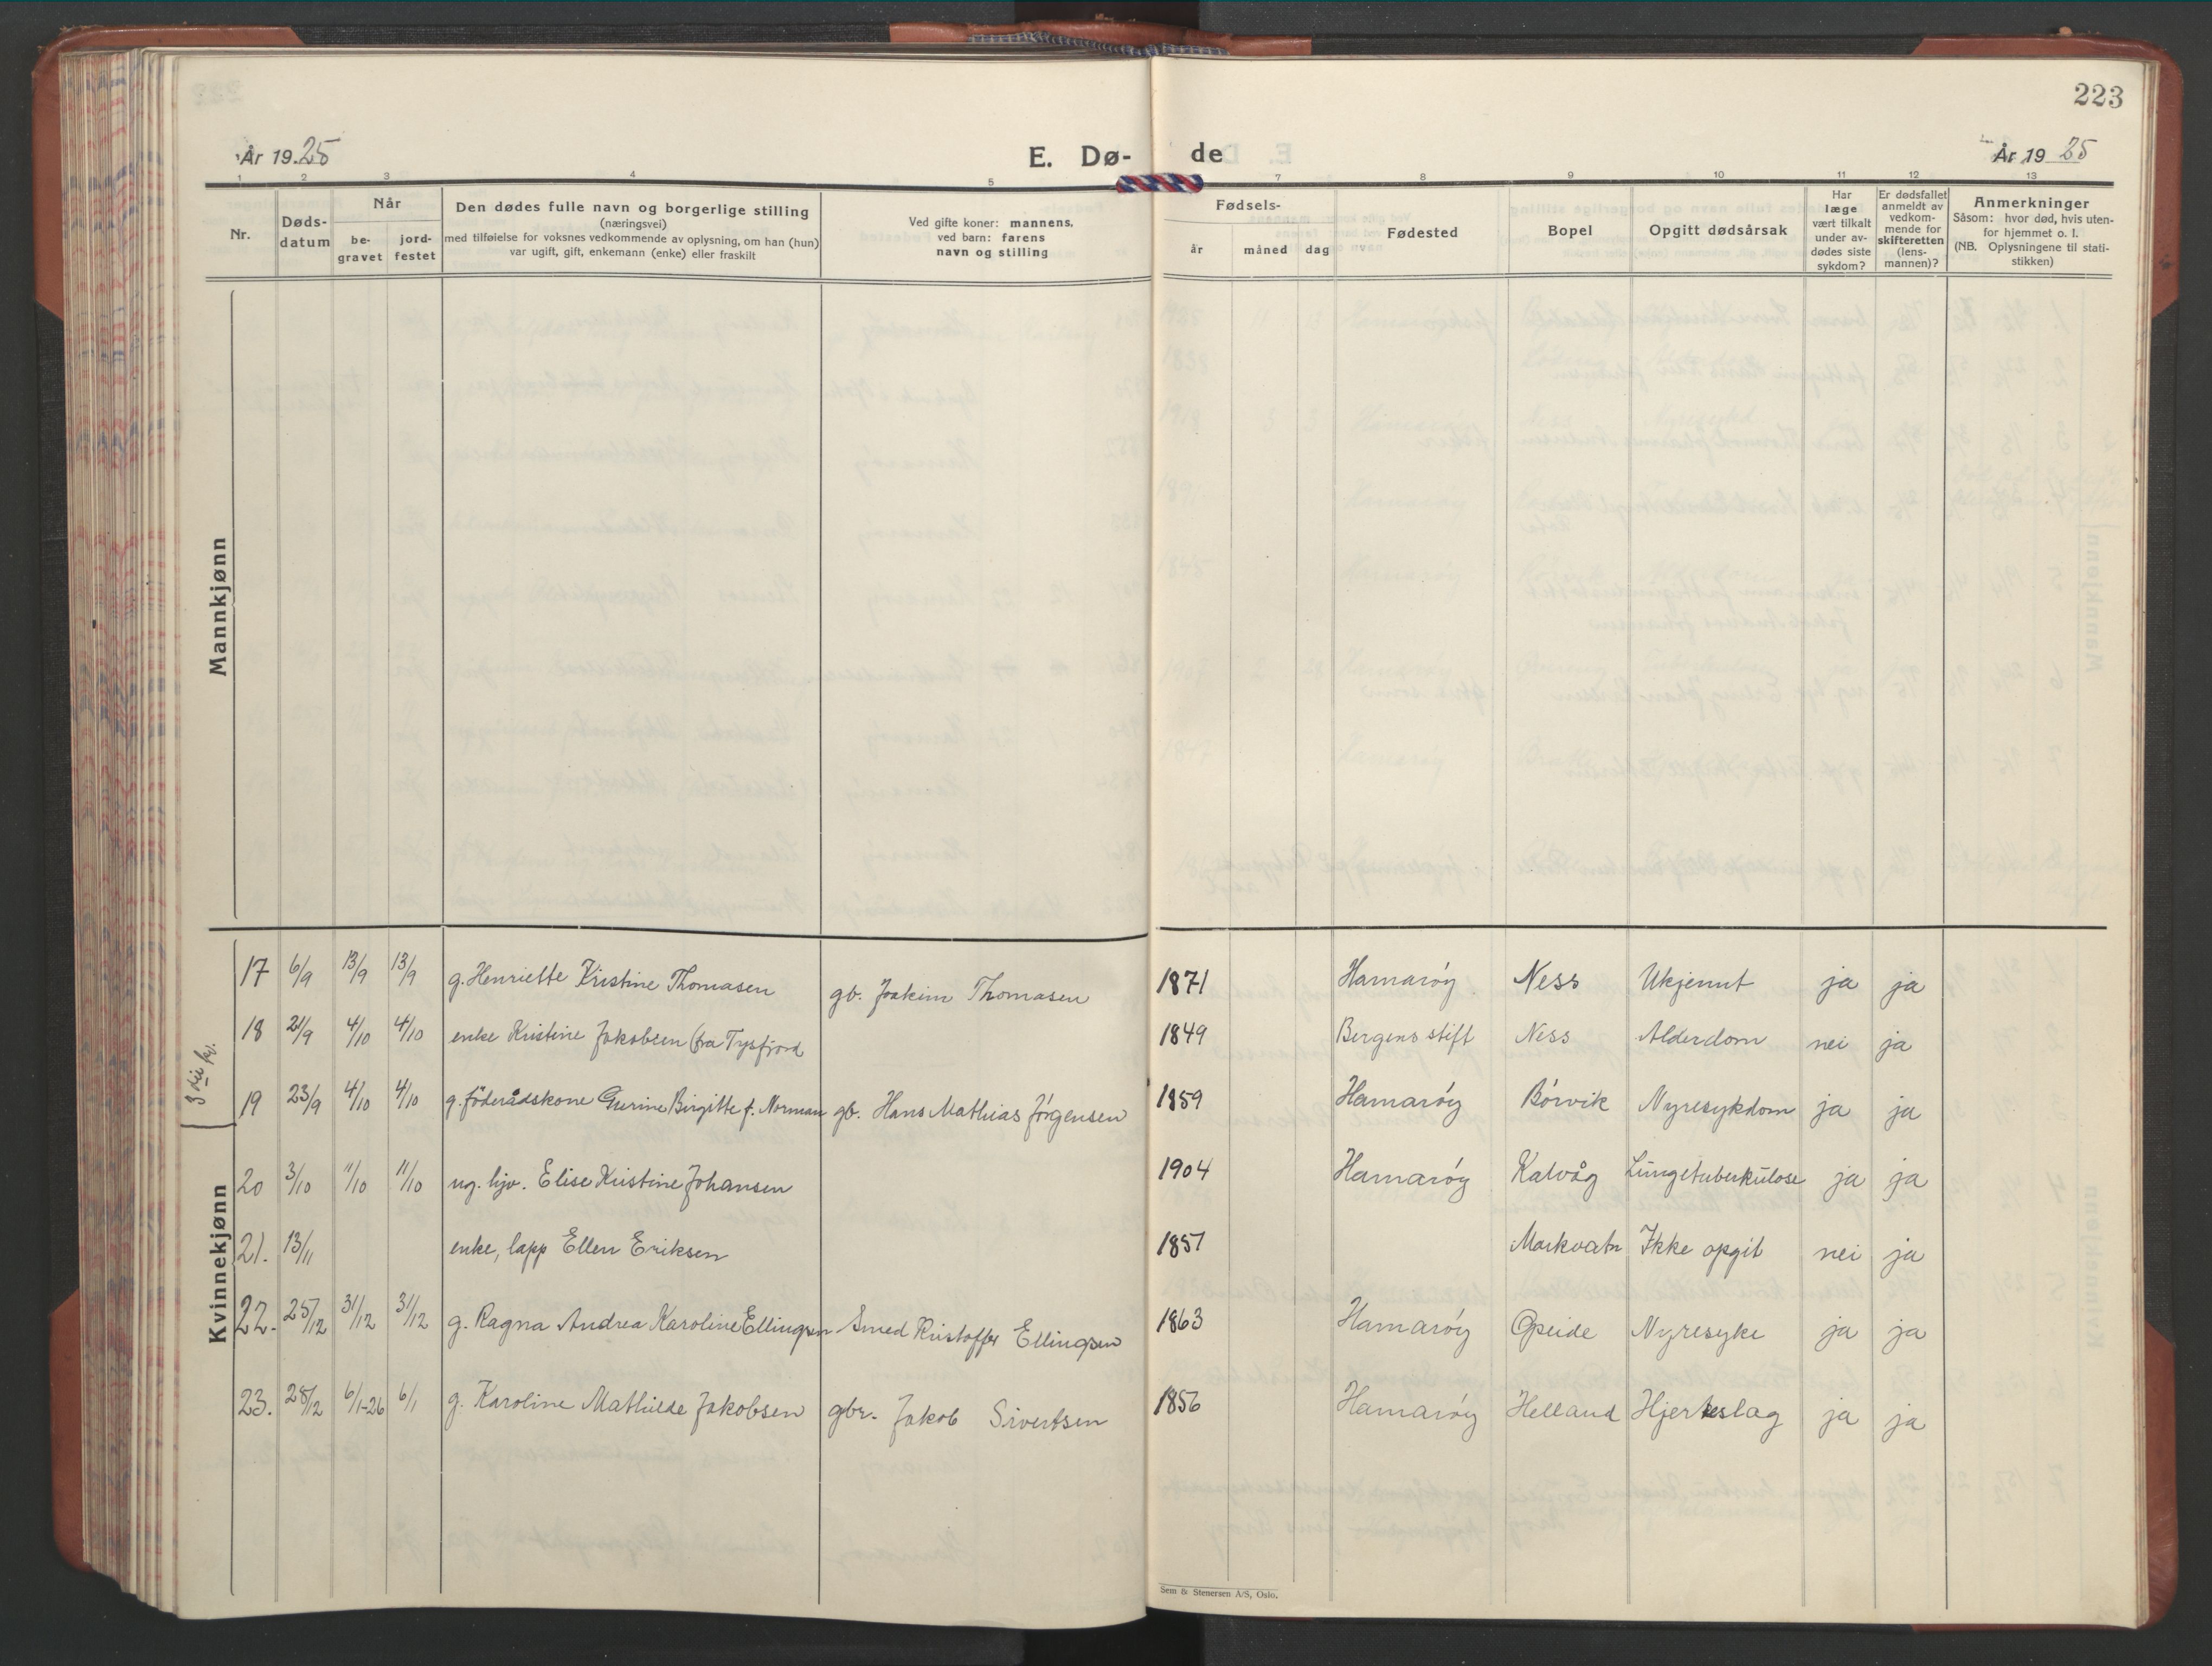 223
År 1925
E. Dø-
de
År 1925
1 2 3 4 5 7 8 9 10 11 12 13
Nr.
Døds-
datum
Når
be-
gravet
jord-
festet
Den dødes fulle navn og borgerlige stilling
(næringsvei)
med tilføielse for voksnes vedkommende av oplysning, om han (hun)
var ugift, gift, enkemann (enke) eller fraskilt
Ved gifte koner: mannens,
ved barn: farens
navn og stilling
Fødsels-
år måned dag
Fødested
Bopel
Opgitt dødsårsak
Har
læge
vært tilkalt
under av-
dødes siste
sykdom?
Er dødsfallet
anmeldt av
vedkom-
mende for
skifteretten
(lens-
mannen)?
Anmerkninger
Såsom: hvor død, hvis uten-
for hjemmet o. l.
(NB. Oplysningene til stati-
stikken)
Mannkjønn
3die kv.
Kvinnekjønn
17 6/9 13/9 13/9 g. Henriette Kristine Thomasen gb. Joakim Thomasen 1871 Hamarøy Ness Ukjennt ja ja
18 21/9 4/10 4/10 enke Kristine Jakobsen (fra Tysfjord 1849 Bergens stift Ness Alderdom nei ja
19 23/9 4/10 4/10 g. föderådskone Gurine Birgitte f. Norman gb. Hans Mathias Jörgensen 1859 Hamarøy Børvik Nyresykdom ja ja
20 3/10 11/10 11/10 ug. hjv. Elise Kristine Johansen 1904 Hamarøy Kalvåg Lungetuberkulose ja ja
21. 13/11 enke, lapp Ellen Eriksen 1857 Markvatn Ikke opgit nei ja
22. 25/12 31/12 31/12 g. Ragna Andrea Karoline Ellingsen Smed Kristoffer Ellingsen 1863 Hamarøy Opeide Nyresyke ja ja
23. 28/12 6/1-26 6/1 g. Karoline Mathilde Jakobsen gbr. Jakob Sivertsen 1856 Hamarøy Helland Hjerteslag ja ja
Sem & Stenersen A/S, Oslo.